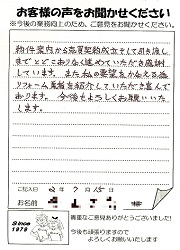 お客様の声をお聞かせください
※今後の業務向上のため、ご意見をお聞かせください。
物件案内から売買契約成立そして引き渡し
までとどこおりなく進めていただき感謝
しています。また私の要望をかなえる為
リフォーム業者を紹介していただき喜んで
おります。今後もよろしくお願いいた
します。
ご記入日 2年7月15日
お名前 様
貴重なご意見ありがとうございました!
今後も頑張りますので
よろしくお願いいたします
Since
1978